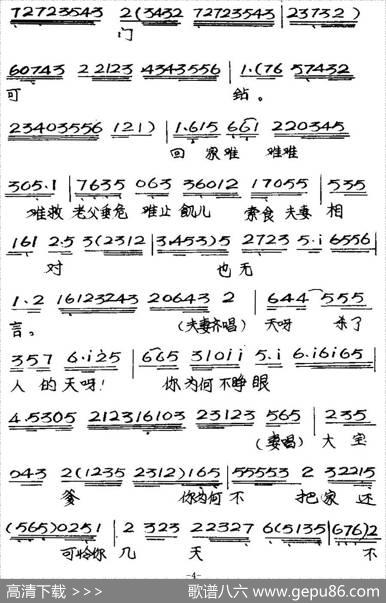 72723543 2(3432 72723543 | 23732)
门
60743 2 2123 .4343556 | 1.(76 57432
可 钻。
23403556 121) | 1.615 661 220345
回 家难 难难
305.1 | 7635 063 36012 17055 | 535
难救 老父垂危 难止 飢儿 素食 夫妻 相
161 2.5 3(2312 | 3.453)5 2723 5.i 6556
对 也无
1.2 16123243 20643 2 | 644 555
言。 (夫妻齐唱) 天呀 杀了
357 6.i25 | 665 310ii 5.i 6.i6i65
人 的天呀! 你为何不睁眼
4.5305 212316103 23123 565 | 235
(妻唱) 大宝
043 2(1235 2312)165 | 55553 2 32215
爹 你为何不 把家 还
(565)0251 | 2 323 22327 6(5135 | 676)2
可怜你 几 天 不
-4-
高清下载 >>> 歌谱八六 www.gepu86.com